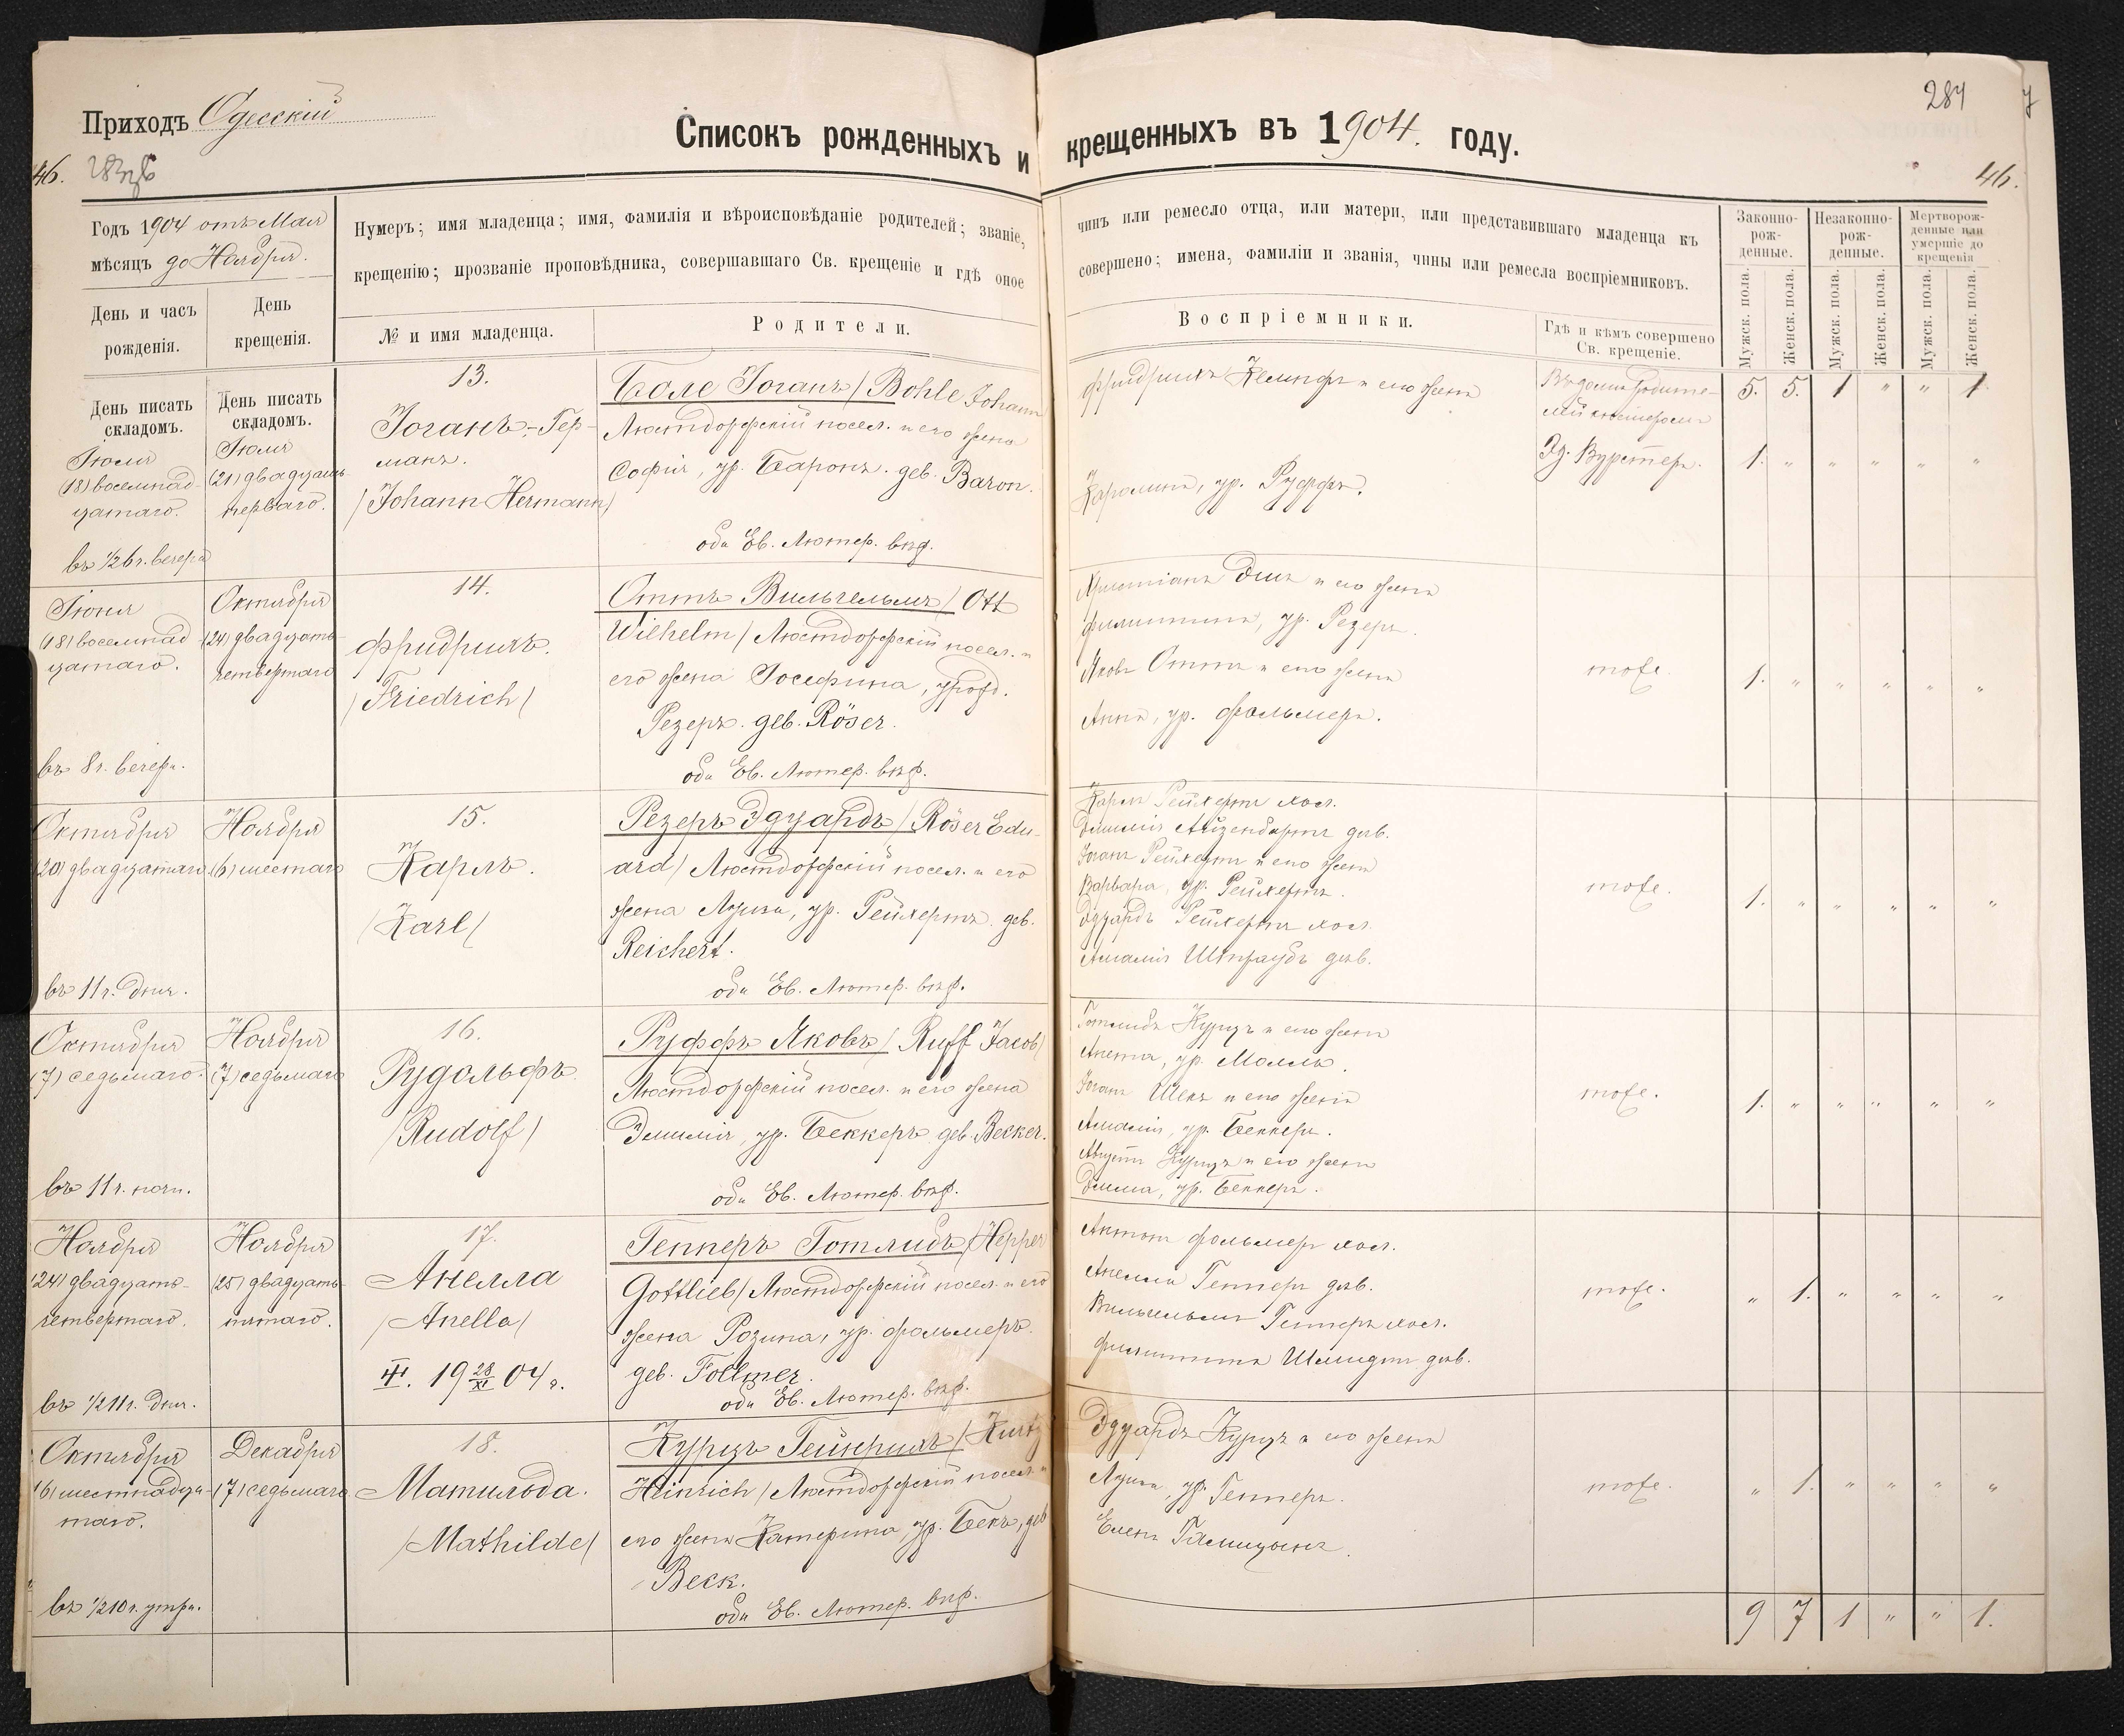 Приходъ Одесскій
Списокъ рожденныхъ и крещенныхъ въ 1904. году.
284
46.
46.
Годъ 1904 отъ Мая
мѣсяцъ до Ноября.
Нумеръ; имя младенца; имя, фамилія и вѣроисповѣданіе родителей; званіе,
крещенію; прозваніе проповѣдника, совершавшаго Св. крещеніе и гдѣ оное
чинъ или ремесло отца, или матери, или представившаго младенца къ
совершено; имена, фамиліи и званія, чины или ремесла воспріемниковъ.
День и часъ
рожденія.
День
крещенія.
№ и имя младенца.
Родители.
Воспріемники.
Гдѣ и кѣмъ совершено
Св. крещеніе.
Законно-
рож-
денные.
Незаконно-
рож-
денные.
Мертворож-
денные или
умершіе до
крещенія
Мужск. пола.
Женск. пола.
Мужск. пола.
Женск. пола.
Мужск. пола.
Женск. пола.
День писать
складомъ.
День писать
складомъ.
Іюля
(18) восемнад-
цатаго.
въ ½ 6 ч. вечера
Іюля
(21) двадцать
перваго.
13.
Іоганъ-Гер-
манъ.
/Johann Hermann/
Боле Іоганъ /Bohle Johann
Люстдорфскій посел. и его жена
Софія, ур. Баронъ. геб. Baron.
оба Ев. Лютер. вѣр.
Фридрихъ Кемпфъ и его жена
Каролина, ур. Руффъ.
Въ домѣ родите-
лей кистеромъ
Эд. Вурстеръ.
5. 5. 1 " " 1.
1. " " " " "
Іюня
(18) восемнад
цатаго.
въ 8 ч. вечера.
Октября
(24) двадцать
четвертаго
14.
Фридрихъ.
/Friedrich/
Оттъ Вильгельмъ / Ott
Wilhelm / Люстдорфскій посел. и
его жена Іосефина, урожд.
Резеръ. геб. Röser.
оба Ев. Лютер. вѣр.
Христіанъ Эшъ и его жена
Филиппина, ур. Резеръ.
Яковъ Оттъ и его жена
Анна, ур. Фольмеръ.
тоже.
1. " " " " "
Октября
(20) двадцатаго
въ 11 ч. дня.
Ноября
(6) шестаго
15.
Карлъ.
/Karl/
Резеръ Эдуардъ / Röser Edu-
ard / Люстдорфскій посел. и его
жена Луиза, ур. Рейхертъ. геб.
Reichert.
оба Ев. Лютер. вѣр.
Карлъ Рейхертъ хол.
Эмилія Айзенбартъ дѣв.
Іоганъ Рейхертъ и его жена
Варвара, ур. Рейхертъ.
Эдуардъ Рейхертъ хол.
Амалія Штраубъ дѣв.
тоже.
1. " " " " "
Октября
(7) седьмаго
въ 11 ч. ночи.
Ноября
(7) седьмаго
16.
Рудольфъ
/Rudolf/
Руффъ Яковъ / Ruff Jacob/
Люстдорфскій посел. и его жена
Эмилія, ур. Беккеръ геб. Becker.
оба Ев. Лютер. вѣр.
Готлибъ Курцъ и его жена
Анета, ур. Моллъ.
Іоганъ Шекъ и его жена
Амалія, ур. Беккеръ.
Августъ Курцъ и его жена
Эмма, ур. Беккеръ.
тоже.
1. " " " " "
Ноября
(24) двадцать-
четвертаго.
въ ½ 11 ч. дня.
Ноября
(25) двадцать
пятаго.
17.
Анелла
/Anella/
III. 19 28/XI 04 г.
Гепперъ Готлибъ /Hepper
Gottlieb/ Люстдорфскій посел. и его
жена Розина, ур. Фольмеръ
геб. Follmer.
оба Ев. Лютер. вѣр.
Антонъ Фольмеръ хол.
Анелла Гепперъ дѣв.
Вильгельмъ Гепперъ хол.
Филиппина Шмидтъ дѣв.
тоже.
" 1. " " " "
Октября
(16) шестнадца-
таго.
въ ½ 10 ч. утра.
Декабря
(7) седьмаго
18.
Матильда.
/Mathilde/
Курцъ Гейнрихъ / Kurtz
Heinrich / Люстдорфскій посел. и
его жена Катерина, ур. Бекъ, геб
Beck.
оба Ев. Лютер. вѣр.
Эдуардъ Курцъ и его жена
Луиза, ур. Гепперъ.
Елена
тоже.
" 1. " " " "
9 7 1 " " 1.